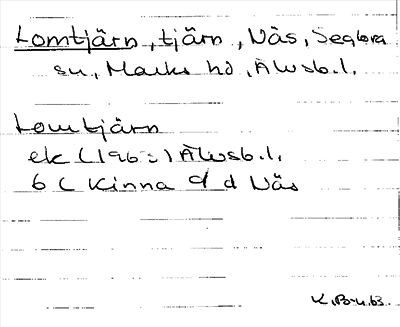 Lomtjärn, tjärn, Näs, Seglora
sn., Marks hd, Älvsb.l.
Lomtjärn
ek (196 ) Älvsb.l.
6 C Kinna d Näs